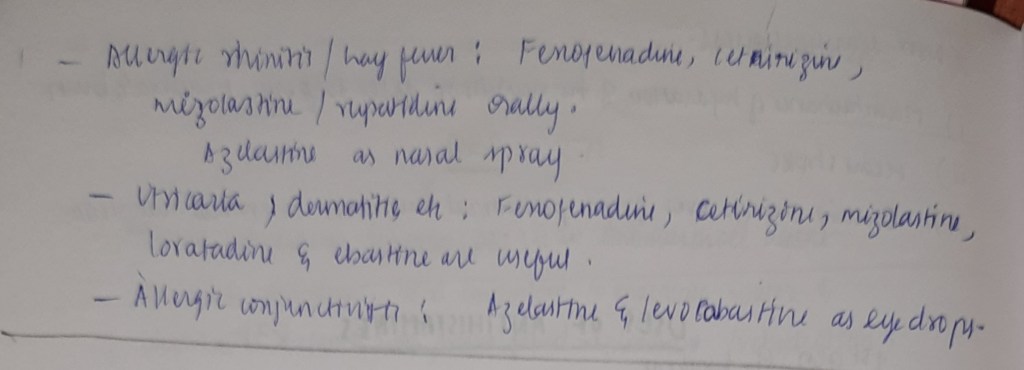 - Allergic rhinitis / hay fever : Fenofenadine, cetirizine,
mizolastine / rupartidine orally.
Azelastine as nasal spray.
- Urticaria, dermatitis etc : Fenofenadine, cetirizine, mizolastine,
loratadine & ebastine are useful.
- Allergic conjunctivitis : Azelastine & levocabastine as eye drops.